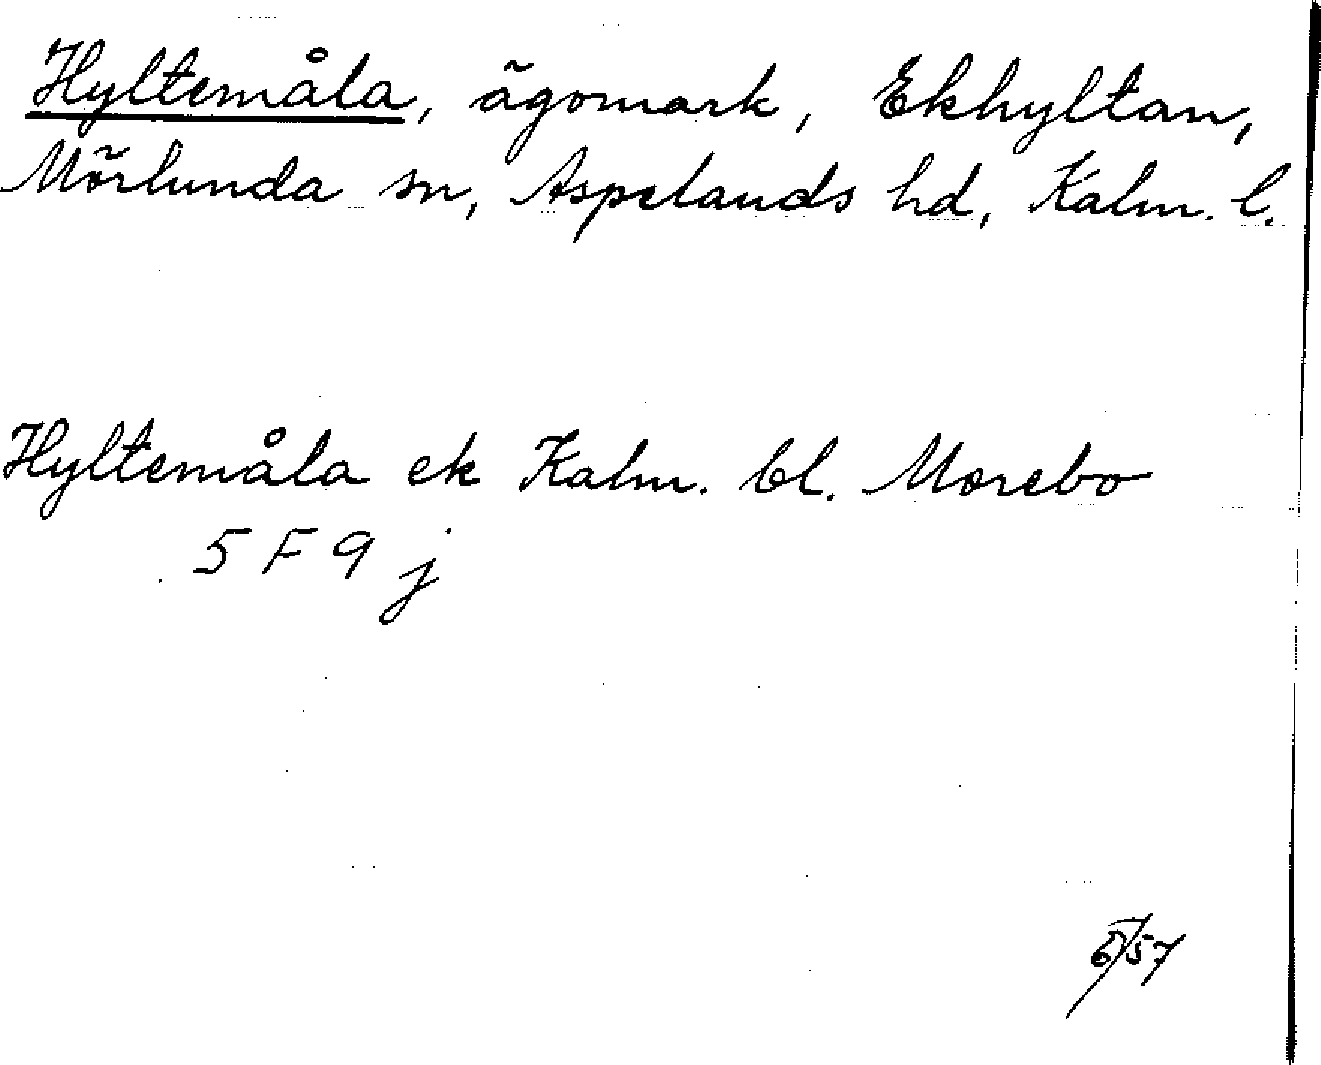 Hyltemåla, ägomark, Ekhyltan,
Mörlunda sn, Aspelands hd, Kalm. l.
Hyltemåla ek Kalm. bl. Morebo
5 F 9 j
5/57